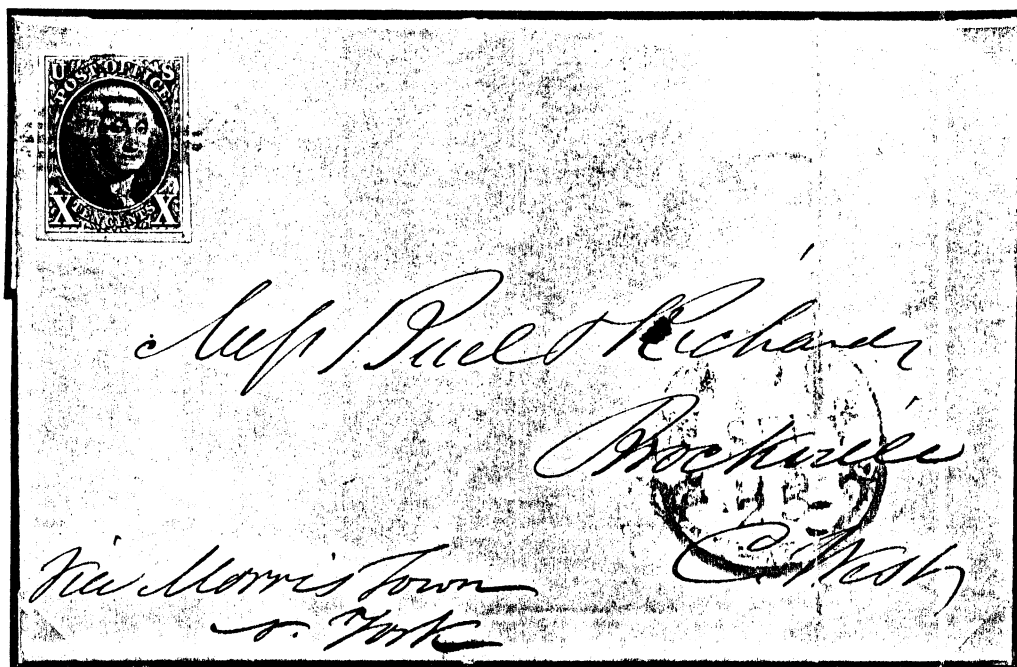 U S
POST OFFICE
X TEN CENTS X
Messrs Buel & Richards
Brockville
C. West
Via Morris Town
N. York